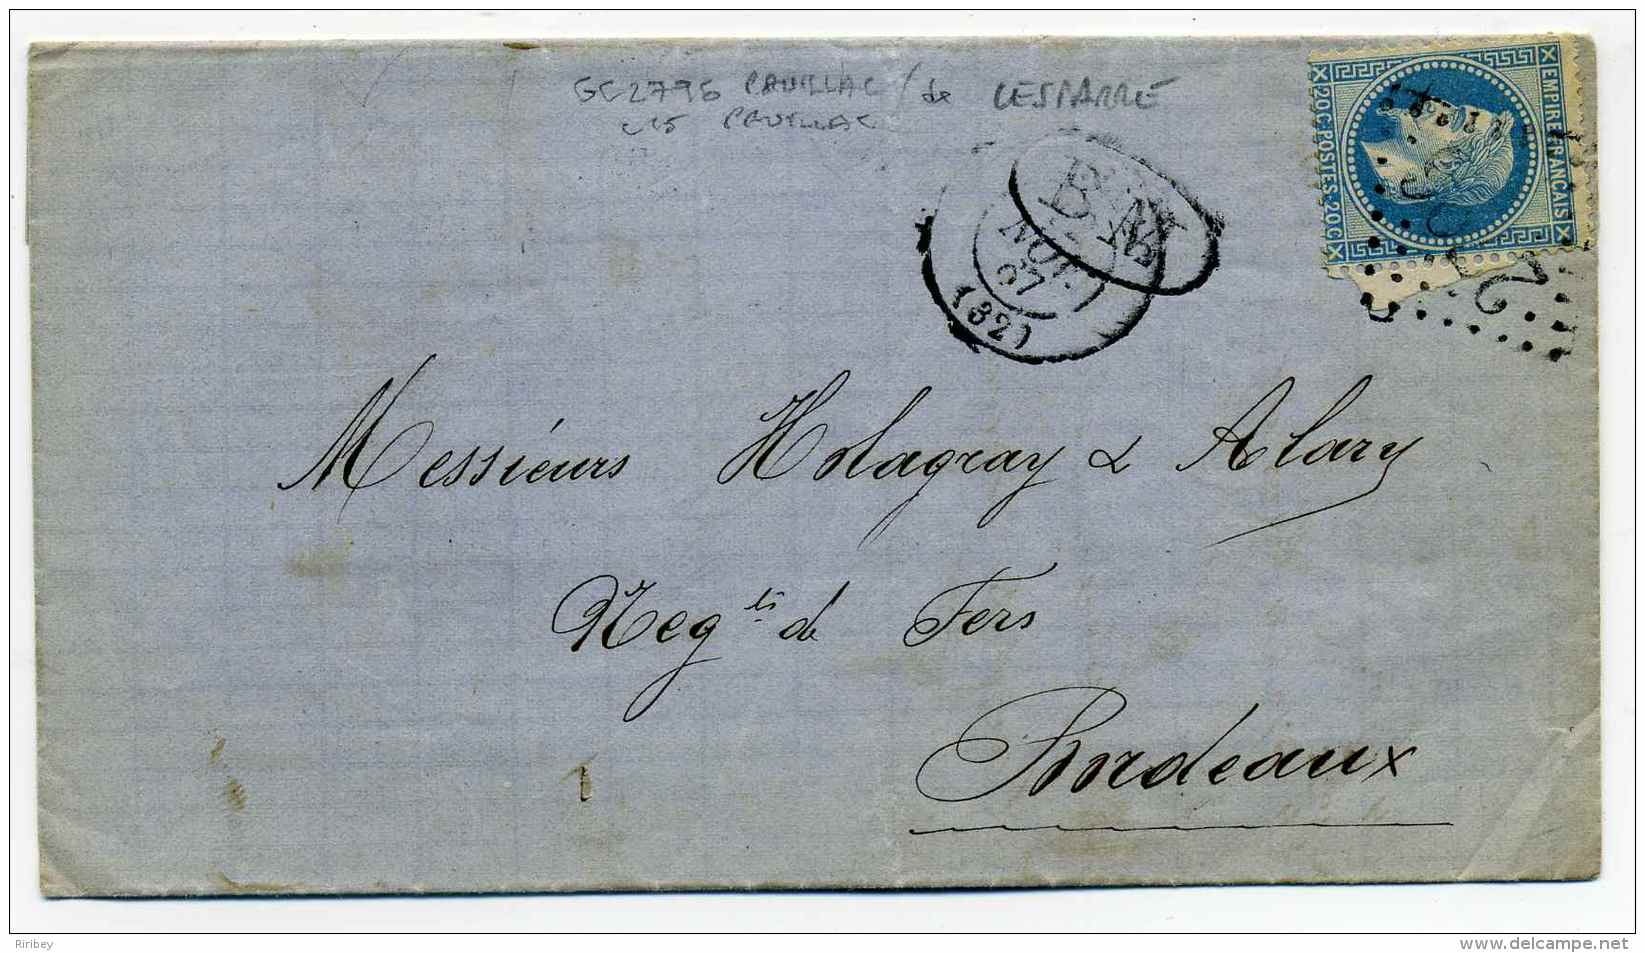 GC 2796 PAUILLAC / de LESPARRE
PAUILLAC
EMPIRE FRANÇAIS
20 C POSTES 20 C
NOV.
67
(32)
Messieurs Holagray & Alary
Neg.ts de Fers
Bordeaux
Ririby
www.delcampe.net